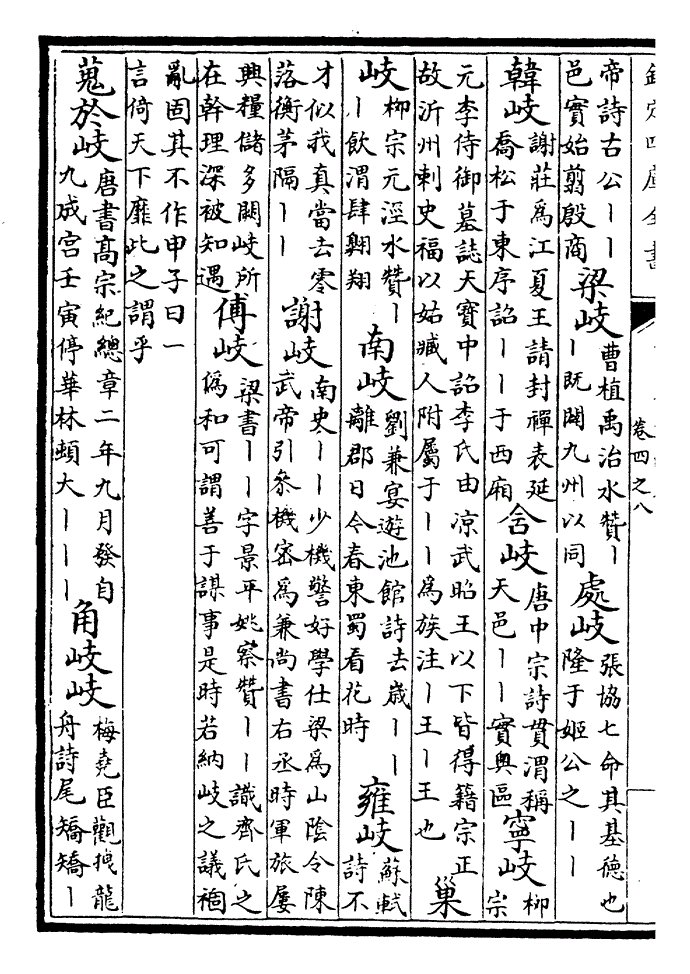 欽定四庫全書
卷四之八
帝詩古公｜｜
邑實始翦殷商
梁岐
曹植禹治水贊｜
｜既闢九州以同
處岐
張協七命其基德也
隆于姬公之｜｜
韓岐
謝莊為江夏王請封禪表延
喬松于東序詔｜｜于西廂
舍岐
唐中宗詩貫渭稱
天邑｜｜實奧區
寧岐
柳
宗
元李侍御墓誌天寶中詔李氏由涼武昭王以下皆得籍宗正
故沂州刺史福以姑臧人附屬于｜｜為族注｜王｜王也
巢
岐
柳宗元涇水贊｜
｜飲渭肆翱翔
南岐
劉兼宴遊池館詩去歲｜｜
離郡日今春東蜀看花時
雍岐
蘇軾
詩不
才似我真當去零
落衡茅隔｜｜
謝岐
南史｜｜少機警好學仕梁為山陰令陳
武帝引參機密為兼尚書右丞時軍旅屢
興糧儲多闕岐所
在幹理深被知遇
傅岐
梁書｜｜字景平姚察贊｜｜識齊氏之
偽和可謂善于謀事是時若納岐之議禍
亂固其不作申子曰一
言倚天下靡此之謂乎
蒐於岐
唐書高宗紀總章二年九月發自
九成宮壬寅停華林頓大｜｜｜
角岐岐
梅堯臣觀拽龍
舟詩尾矯矯｜